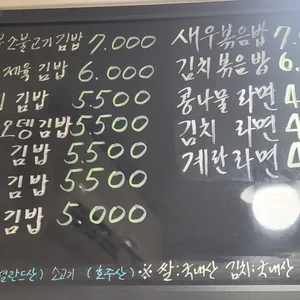 소불고기 김밥 7.000
제육 김밥 6.000
김밥 5500
오뎅김밥 5500
김밥 5.500
김밥 5500
김밥 5.000
새우볶음밥 7.
김치볶음밥 6.
콩나물 라면 4
김치 라면 4
계란라면 4
질란드산) 소고기 (호주산) ※ 쌀:국내산 김치:국내산